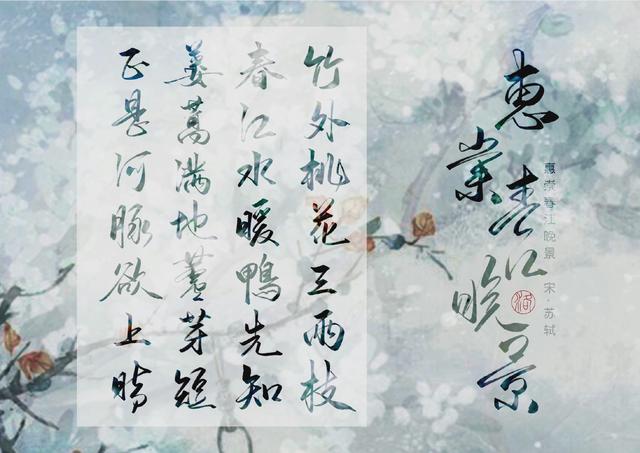 惠崇春江晚景
惠崇春江晚景 宋·苏轼
竹外桃花三两枝
春江水暖鴨先知
蒌蒿满地蘆芽短
正是河豚欲上時